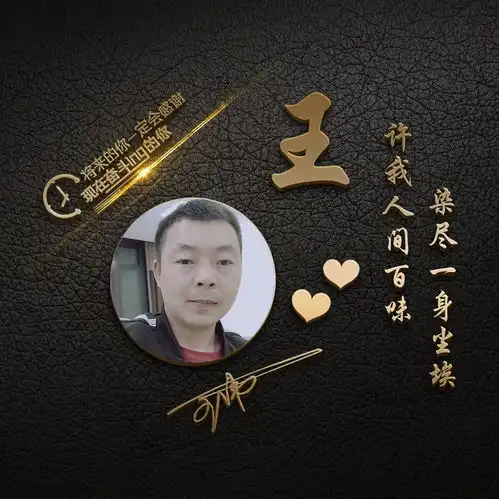 将来的你一定会感谢
现在奋斗ing的你
王
许我人间百味
染尽一身尘埃